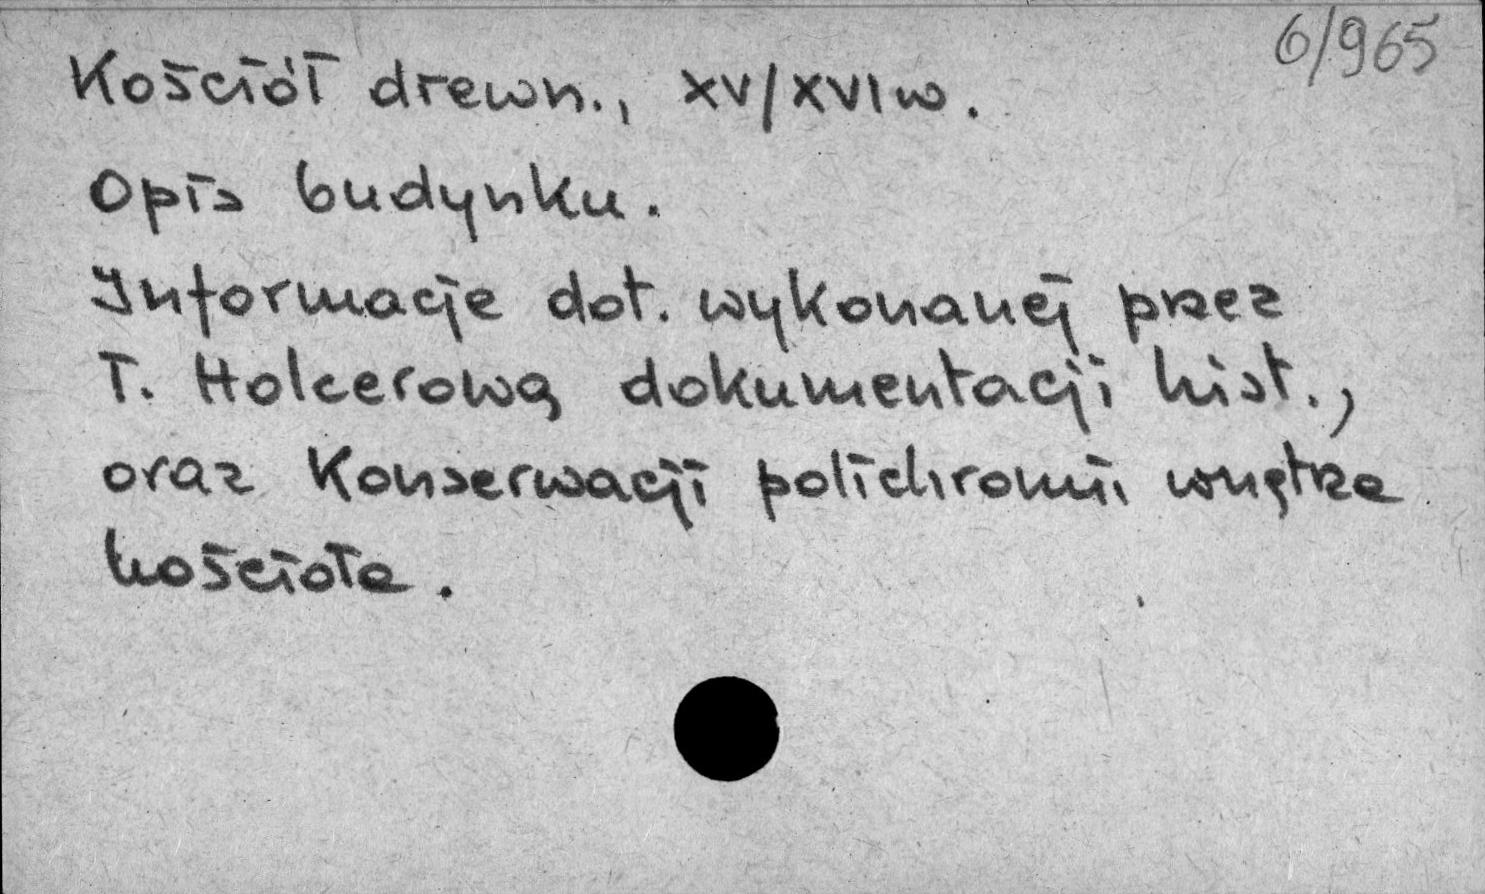 6/965
Kościół drewn., XV/XVI w.
Opis budynku.
Informacje dot. wykonanej przez
T. Holcerową dokumentacji hist.,
oraz konserwacji polichromii wnętrza
kościoła.